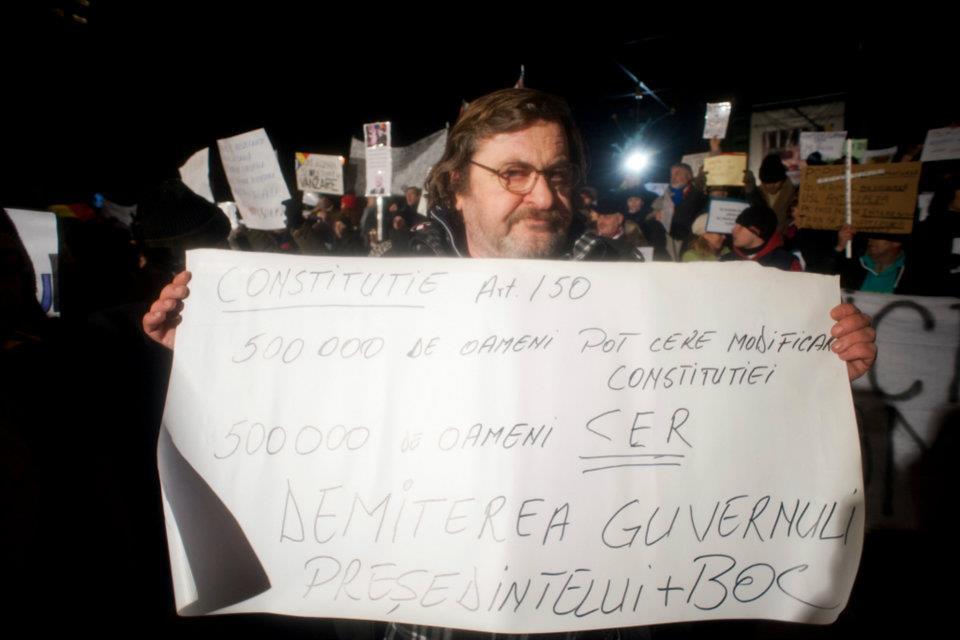 CONSTITUTIE Art. 150
500 000 DE OAMENI POT CERE MODIFICAR
CONSTITUTIEI
500 000 DE OAMENI CER
DEMITEREA GUVERNULI
PREŞEDINTELUI + BOC
VANZARE